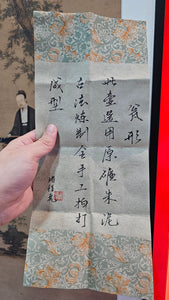 形
此壺選用原礦朱泥
古法炼制全手工拍打
成型